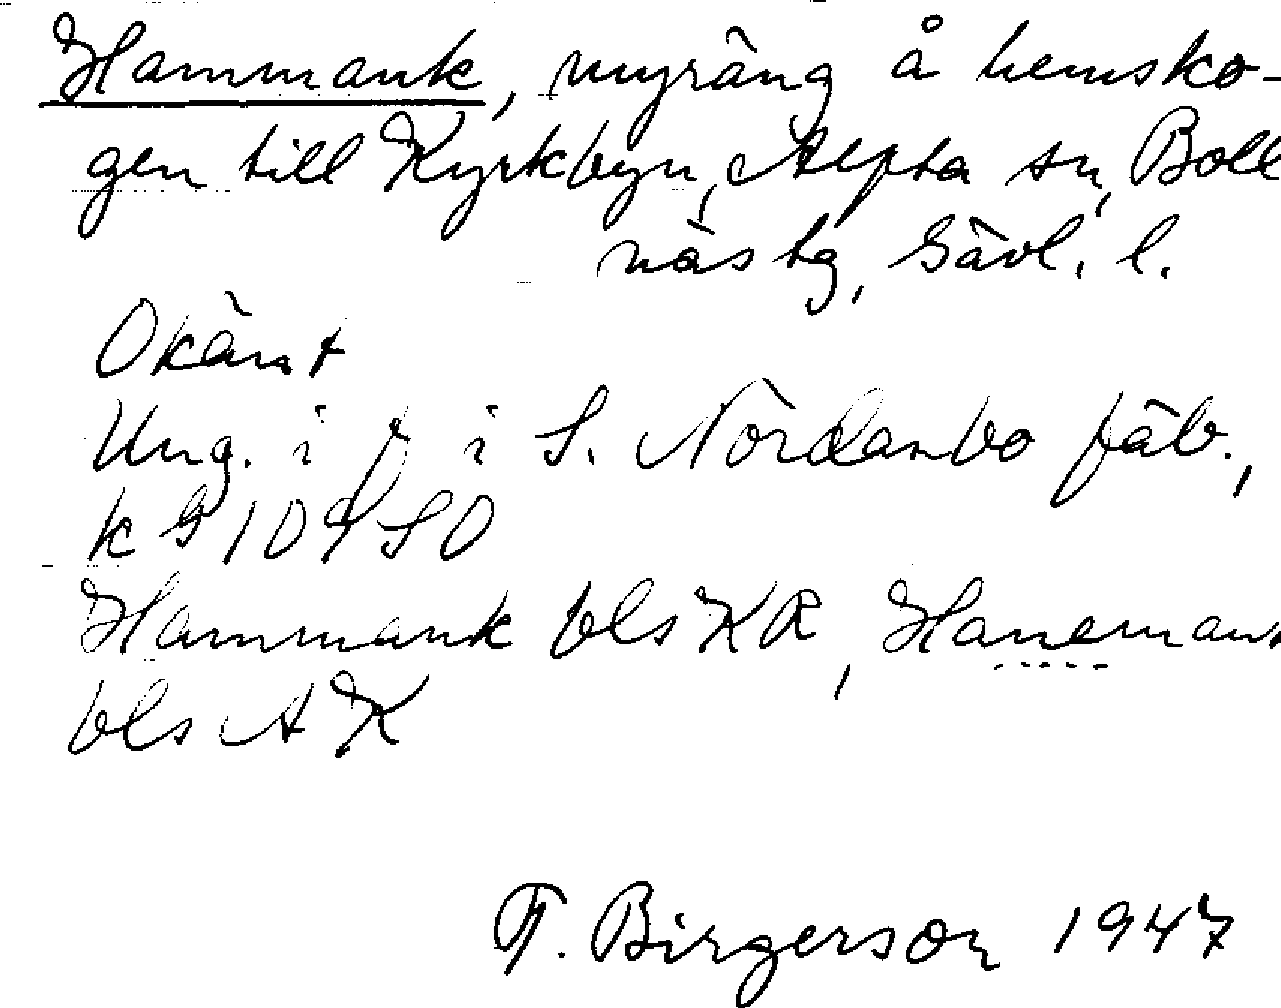 Hammank, myräng å hemsko-
gen till Kyrkbyn, Alfta sn, Boll
näs tg, Gävl. l.
Okänt
Ung. i i S. Nordanbo fäb.,
Hammank bls KR, Hanemank
bls AK
T. Birgerson 1947